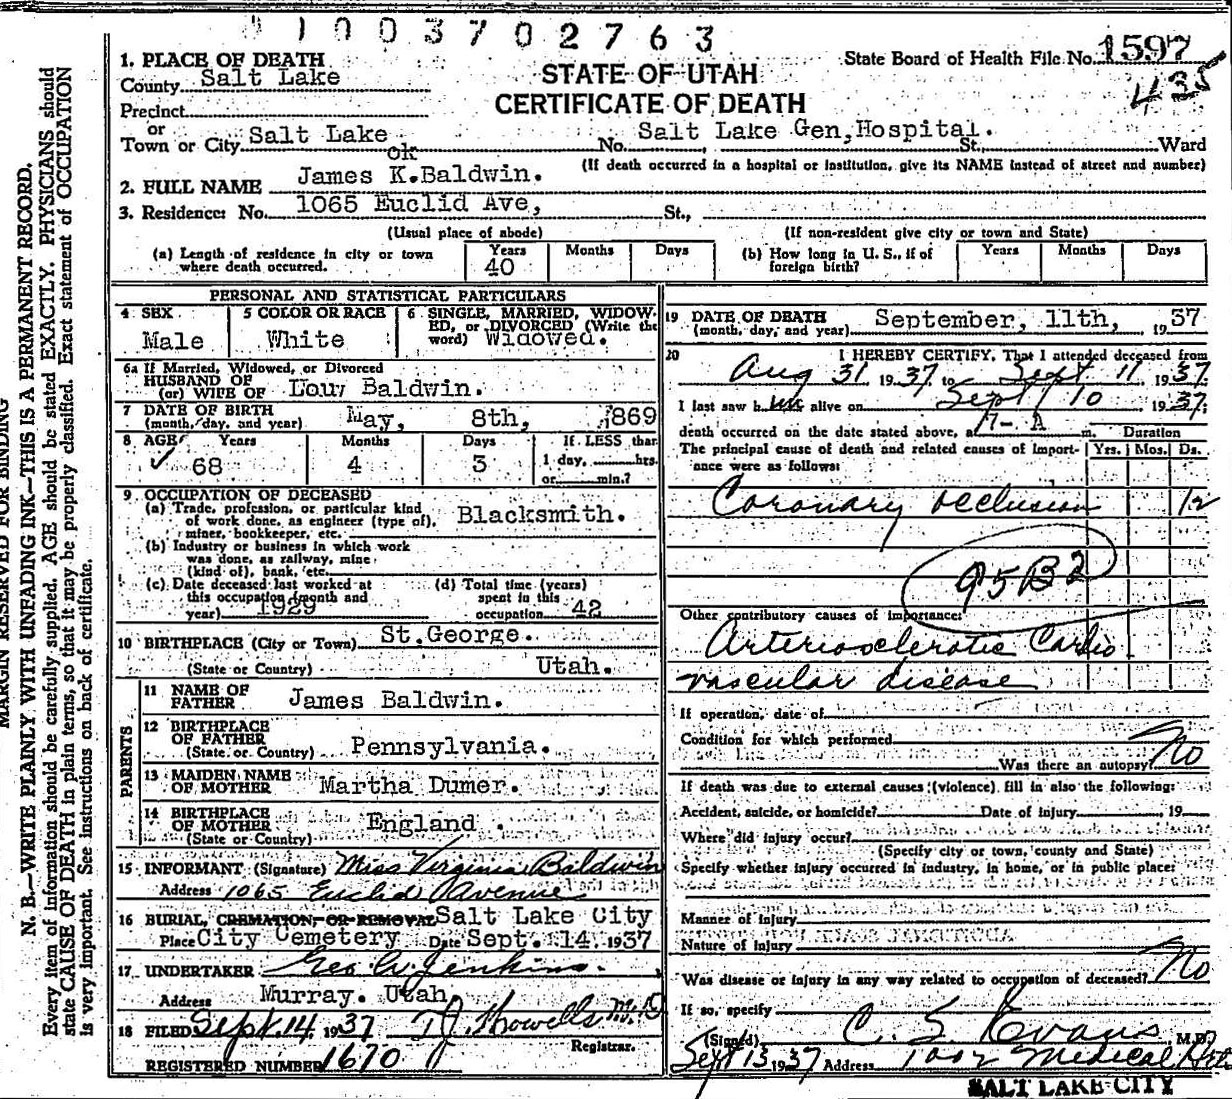 1003702763
1. PLACE OF DEATH
County Salt Lake
Precinct
or
Town or City Salt Lake
ok
STATE OF UTAH
CERTIFICATE OF DEATH
State Board of Health File No. 1597
435
No. Salt Lake Gen, Hospital. St., Ward
(If death occurred in a hospital or institution, give its NAME instead of street and number)
2. FULL NAME James K. Baldwin.
3. Residence: No. 1065 Euclid Ave, St.,
(Usual place of abode) (If non-resident give city or town and State)
(a) Length of residence in city or town where death occurred. Years 40 Months Days
(b) How long in U. S., if of foreign birth? Years Months Days
PERSONAL AND STATISTICAL PARTICULARS
4 SEX Male
5 COLOR OR RACE White
6 SINGLE, MARRIED, WIDOWED, or DIVORCED (Write the word) Widowed.
6a If Married, Widowed, or Divorced
HUSBAND OF
(or) WIFE OF Louw Baldwin.
7 DATE OF BIRTH
(month, day, and year) May, 8th, 1869
8 AGE Years 68 Months 4 Days 3 If LESS than
1 day, hrs.
or min.?
9 OCCUPATION OF DECEASED
(a) Trade, profession, or particular kind
of work done, as engineer (type of),
miner, bookkeeper, etc. Blacksmith.
(b) Industry or business in which work
was done, as railway, mine
(kind of), bank, etc.
(c) Date deceased last worked at
this occupation (month and
year) 1929
(d) Total time (years)
spent in this
occupation 42
10 BIRTHPLACE (City or Town) St. George.
(State or Country) Utah.
PARENTS
11 NAME OF
FATHER James Baldwin.
12 BIRTHPLACE
OF FATHER
(State or Country) Pennsylvania.
13 MAIDEN NAME
OF MOTHER Martha Dumer.
14 BIRTHPLACE
OF MOTHER
(State or Country) England .
15 INFORMANT (Signature) Miss Virginia Baldwin
Address 1065 Euclid Avenue
16 BURIAL, CREMATION, OR REMOVAL Salt Lake City
Place City Cemetery Date Sept. 14. 1937
17 UNDERTAKER Geo. W. Jenkins.
Address Murray. Utah
18 FILED Sept. 14, 1937 Howells M.D
Registrar.
REGISTERED NUMBER 1670
19 DATE OF DEATH
(month, day, and year) September, 11th, 1937
20 I HEREBY CERTIFY, That I attended deceased from
Aug 31 1937 to Sept 11 1937
I last saw him alive on Sept 10 1937
death occurred on the date stated above, at 7- A m. Duration
The principal cause of death and related causes of importance were as follows: Yrs. Mos. Ds.
Coronary occlusion 12
95B2
Other contributory causes of importance:
Arteriosclerotic Cardio
vascular disease
If operation, date of
Condition for which performed
Was there an autopsy? No
If death was due to external causes (violence) fill in also the following:
Accident, suicide, or homicide? Date of injury 19
Where did injury occur?
(Specify city or town, county and State)
Specify whether injury occurred in industry, in home, or in public place:
Manner of injury
Nature of injury
Was disease or injury in any way related to occupation of deceased? No
If so, specify
(Signed) C. S. Evans M.D.
Sept 13 1937 Address 1002 Medical Arts
SALT LAKE CITY
MARGIN RESERVED FOR BINDING
N. B.—WRITE PLAINLY WITH UNFADING INK—THIS IS A PERMANENT RECORD.
Every item of information should be carefully supplied. AGE should be stated EXACTLY. PHYSICIANS should
state CAUSE OF DEATH in plain terms, so that it may be properly classified. Exact statement of OCCUPATION
is very important. See instructions on back of certificate.